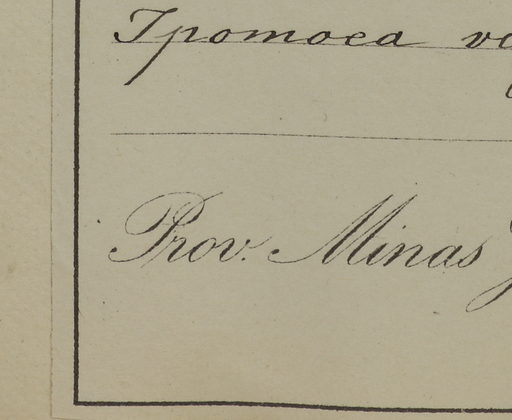 Ipomoea
Prov. Minas